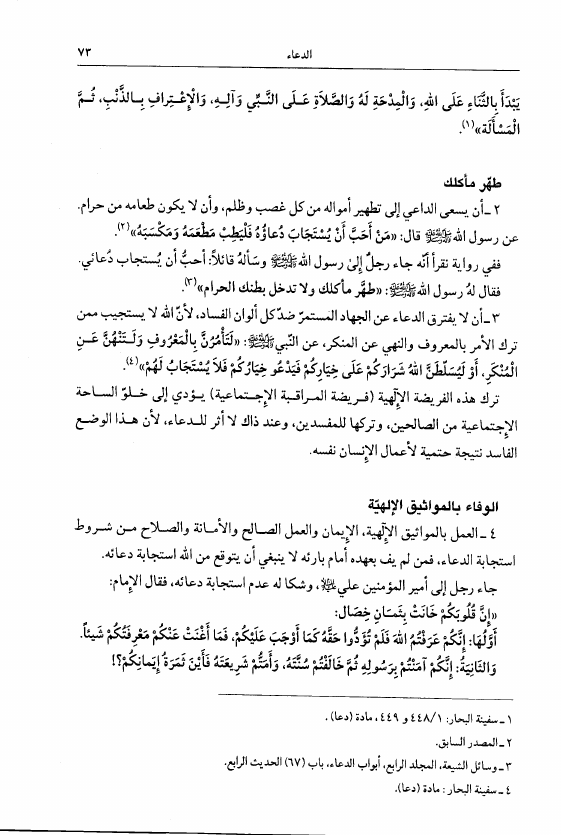 الدعاء ٧٣
يَبْدَأَ بِالثَّنَاءِ عَلَى اللهِ، وَالْمِدْحَةِ لَهُ وَالصَّلاَةِ عَلَى النَّبِيِّ وَآلِهِ، وَالْإِعْتِرافِ بِالذَّنْبِ، ثُمَّ
الْمَسْأَلَة»(١).
طهّر مأكلك
٢ ـ أن يسعى الداعي إلى تطهير أمواله من كل غصب وظلم، وأن لا يكون طعامه من حرام.
عن رسول الله ﷺ قال: «مَنْ أَحَبَّ أَنْ يُسْتَجَابَ دُعاؤُهُ فَلْيَطِبْ مَطْعَمَهُ وَمَكْسَبَهُ»(٢).
ففي رواية نقرأ أنّه جاء رجلٌ إلىٰ رسول الله ﷺ وسألهُ قائلاً: أحبُّ أن يُستجاب دُعائي.
فقال لهُ رسول الله ﷺ: «طهَّر مأكلك ولا تدخل بطنك الحرام»(٣).
٣ ـ أن لا يفترق الدعاء عن الجهاد المستمرّ ضدّ كل ألوان الفساد، لأنّ الله لا يستجيب ممن
ترك الأمر بالمعروف والنهي عن المنكر، عن النّبي ﷺ: «لَتَأْمُرُنَّ بِالْمَعْرُوفِ وَلَتَنْهُنَّ عَنِ
الْمُنْكَرِ، أَوْ لَيُسَلِّطَنَّ اللهُ شَرَارَكُمْ عَلَى خِيَارِكُمْ فَيَدْعُو خِيَارُكُمْ فَلاَ يُسْتَجَابُ لَهُمْ»(٤).
ترك هذه الفريضة الإلٰهية (فريضة المراقبة الإجتماعية) يؤدي إلى خلوّ الساحة
الإجتماعية من الصالحين، وتركها للمفسدين، وعند ذاك لا أثر للدعاء، لأن هذا الوضع
الفاسد نتيجة حتمية لأعمال الإنسان نفسه.
الوفاء بالمواثيق الإلهيّة
٤ ـ العمل بالمواثيق الإلٰهية، الإيمان والعمل الصالح والأمانة والصلاح من شروط
استجابة الدعاء، فمن لم يف بعهده أمام بارئه لا ينبغي أن يتوقع من الله استجابة دعائه.
جاء رجل إلى أمير المؤمنين علي ﵇، وشكا له عدم استجابة دعائه، فقال الإمام:
«إِنَّ قُلُوبَكُمْ خَانَتْ بِثَمَانِ خِصَال:
أَوَّلُهَا: إِنَّكُمْ عَرَفْتُمُ اللهَ فَلَمْ تُؤَدُّوا حَقَّهُ كَمَا أَوْجَبَ عَلَيْكُمْ، فَمَا أَغْنَتْ عَنْكُمْ مَعْرِفَتُكُمْ شَيئاً.
وَالثَانِيَةُ: إِنَّكُمْ آمَنْتُمْ بِرَسُولِهِ ثُمَّ خَالَفْتُمْ سُنَّتَهُ، وَأَمَتُّمْ شَرِيعَتَهُ فَأَيْنَ ثَمَرَةُ إِيمَانِكُمْ؟!
١ ـ سفينة البحار: ٤٤٨/١ و ٤٤٩، مادة (دعا).
٢ ـ المصدر السابق.
٣ ـ وسائل الشيعة، المجلد الرابع، أبواب الدعاء، باب (٦٧) الحديث الرابع.
٤ ـ سفينة البحار: مادة (دعا).